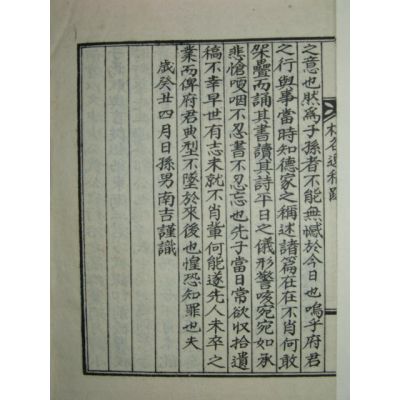 之意也然爲子孫者不能無憾於今日也嗚乎府君
之行與事當時知德家之稱述諸篇在在不肖何敢
架疊而誦其書讀其詩平日之儀形警咳宛宛如承
悲愴哽咽不忍書不忍忘也先子當日常欲收拾遺
稿不幸早世有志未就不肖輩何能遂先人未卒之
業而俾府君典型不墜於來後也惶恐知罪也夫
歲癸丑四月日孫男南吉謹識
遺稿跋